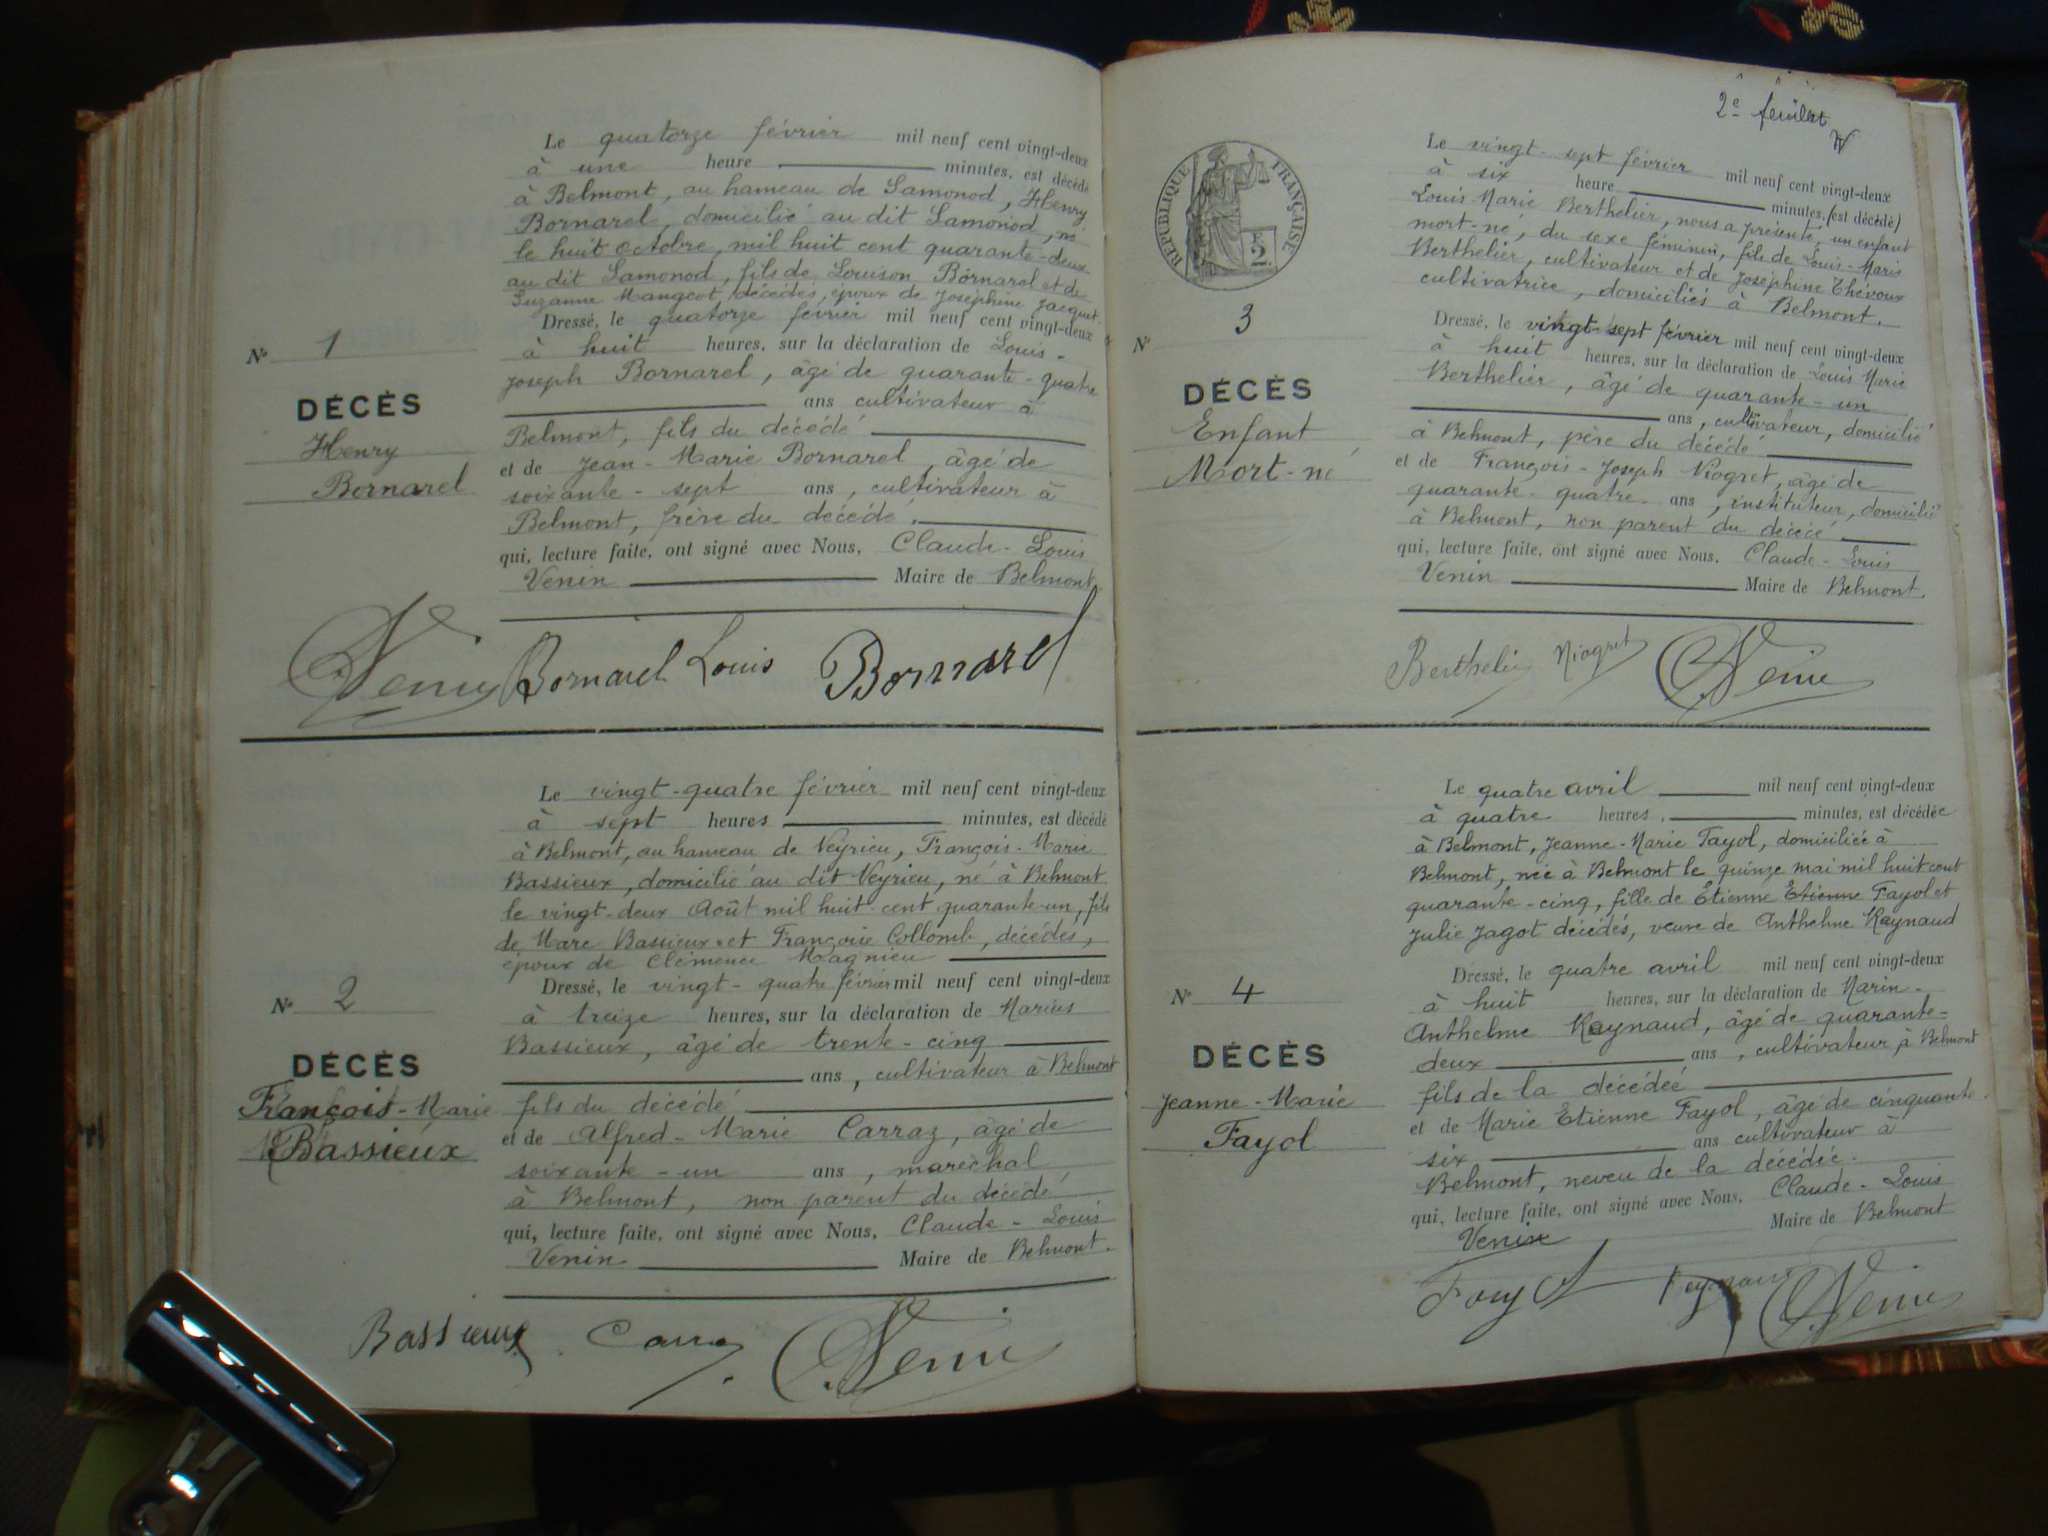 Le quatorze février mil neuf cent vingt-deux
à une heure minutes, est décédé
à Belmont, au hameau de Samonod, Henry
Bornarel, domicilié au dit Samonod, né
le huit octobre, mil huit cent quarante-deux
au dit Samonod, fils de Louison Bornarel et de
Suzanne Mangeot, décédés, époux de Joséphine Jacquet.
Dressé, le quatorze février mil neuf cent vingt-deux
Nº 1
à huit heures, sur la déclaration de Louis-
Joseph Bornarel, âgé de quarante-quatre
DÉCÈS
ans cultivateur à
Henry
Belmont, fils du décédé
Bornarel
et de Jean-Marie Bornarel, âgé de
soixante-sept ans, cultivateur à
Belmont, frère du décédé.
qui, lecture faite, ont signé avec Nous, Claude-Louis
Venin Maire de Belmont.
Venin Bornarel Louis Bornarel
Le vingt-quatre février mil neuf cent vingt-deux
à sept heures minutes, est décédé
à Belmont, au hameau de Veyrieu, François-Marie
Bassieux, domicilié au dit Veyrieu, né à Belmont
le vingt-deux Août mil huit-cent quarante-un, fils
de Marc Bassieux et Françoise Collomb, décédés,
époux de Clémence Magnieu
Dressé, le vingt-quatre février mil neuf cent vingt-deux
Nº 2
à treize heures, sur la déclaration de Marius
Bassieux, âgé de trente-cinq
DÉCÈS
ans, cultivateur à Belmont
François-Marie
fils du décédé
Bassieux
et de Alfred-Marie Carraz, âgé de
soixante-un ans, maréchal
à Belmont, non parent du décédé
qui, lecture faite, ont signé avec Nous, Claude-Louis
Venin Maire de Belmont.
Bassieux Carraz Venin
2e feuillet
RÉPUBLIQUE FRANÇAISE
2
Le vingt-sept février mil neuf cent vingt-deux
à six heure minutes, (est décédé)
Louis Marie Berthelier, nous a présenté, un enfant
mort-né, du sexe féminin, fils de Louis-Marie
Berthelier, cultivateur et de Joséphine Thévoux
cultivatrice, domiciliés à Belmont.
Dressé, le vingt-sept février mil neuf cent vingt-deux
Nº 3
à huit heures, sur la déclaration de Louis Marie
Berthelier, âgé de quarante-un
DÉCÈS
ans, cultivateur, domicilié
Enfant
à Belmont, père du décédé
Mort-né
et de François-Joseph Niogret, âgé de
quarante-quatre ans, instituteur, domicilié
à Belmont, non parent du décédé
qui, lecture faite, ont signé avec Nous, Claude-Louis
Venin Maire de Belmont.
Berthelier Niogret Venin
Le quatre avril mil neuf cent vingt-deux
à quatre heures, minutes, est décédée
à Belmont, Jeanne-Marie Fayol, domiciliée à
Belmont, née à Belmont le quinze mai mil huit cent
quarante-cinq, fille de Etienne Etienne Fayol et
Julie Jagot décédés, veuve de Anthelme Raynaud
Dressé, le quatre avril mil neuf cent vingt-deux
Nº 4
à huit heures, sur la déclaration de Marin-
Anthelme Raynaud, âgé de quarante-
DÉCÈS
deux ans, cultivateur, à Belmont
Jeanne-Marie
fils de la décédée
Fayol
et de Marie Etienne Fayol, âgé de cinquante-
six ans cultivateur à
Belmont, neveu de la décédée.
qui, lecture faite, ont signé avec Nous, Claude-Louis
Venin Maire de Belmont
Fayol Venin